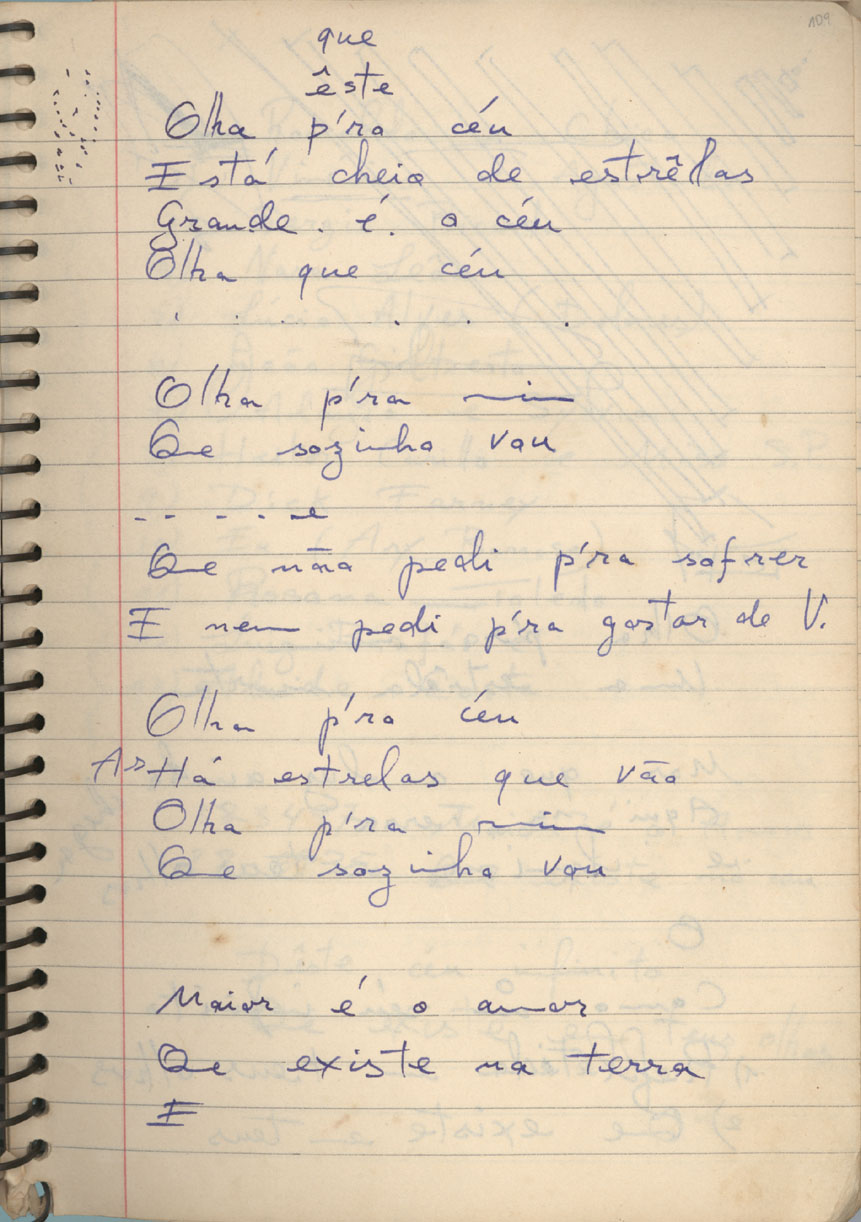 109
que
êste
Olha p'ra céu
Está cheio de estrêlas
Grande. é. o céu
Olha que céu
Olha p'ra mim
Que sozinho vou
Que não pedi p'ra sofrer
E nem pedi p'ra gostar de V.
Olha p'ro céu
As Há estrelas que vão
Olha p'ra mim
Que sozinho vou
Maior é o amor
Que existe na terra
E